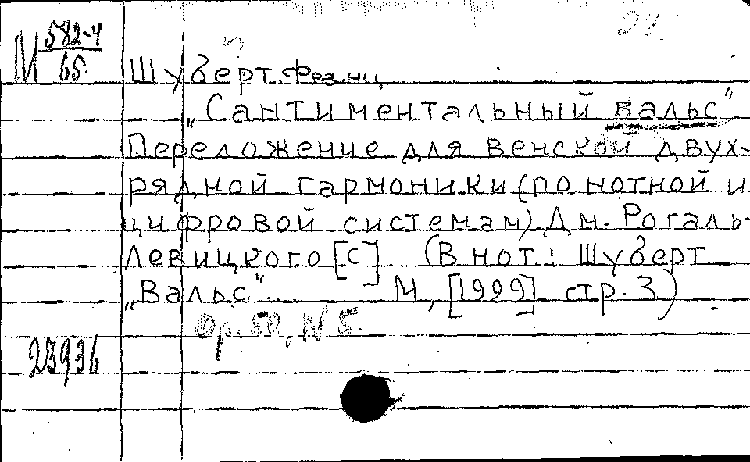 М 582-4
65
Шуберт Франц
„Сантиментальный вальс“
Переложение для венской двух-
рядной гармоники (по нотной и
цифровой системам) Дм. Рогаль-
Левицкого [С] (В нот.: Шуберт
„Вальс“ М, [1929] стр. 3)
Op. 50, N 5.
23936